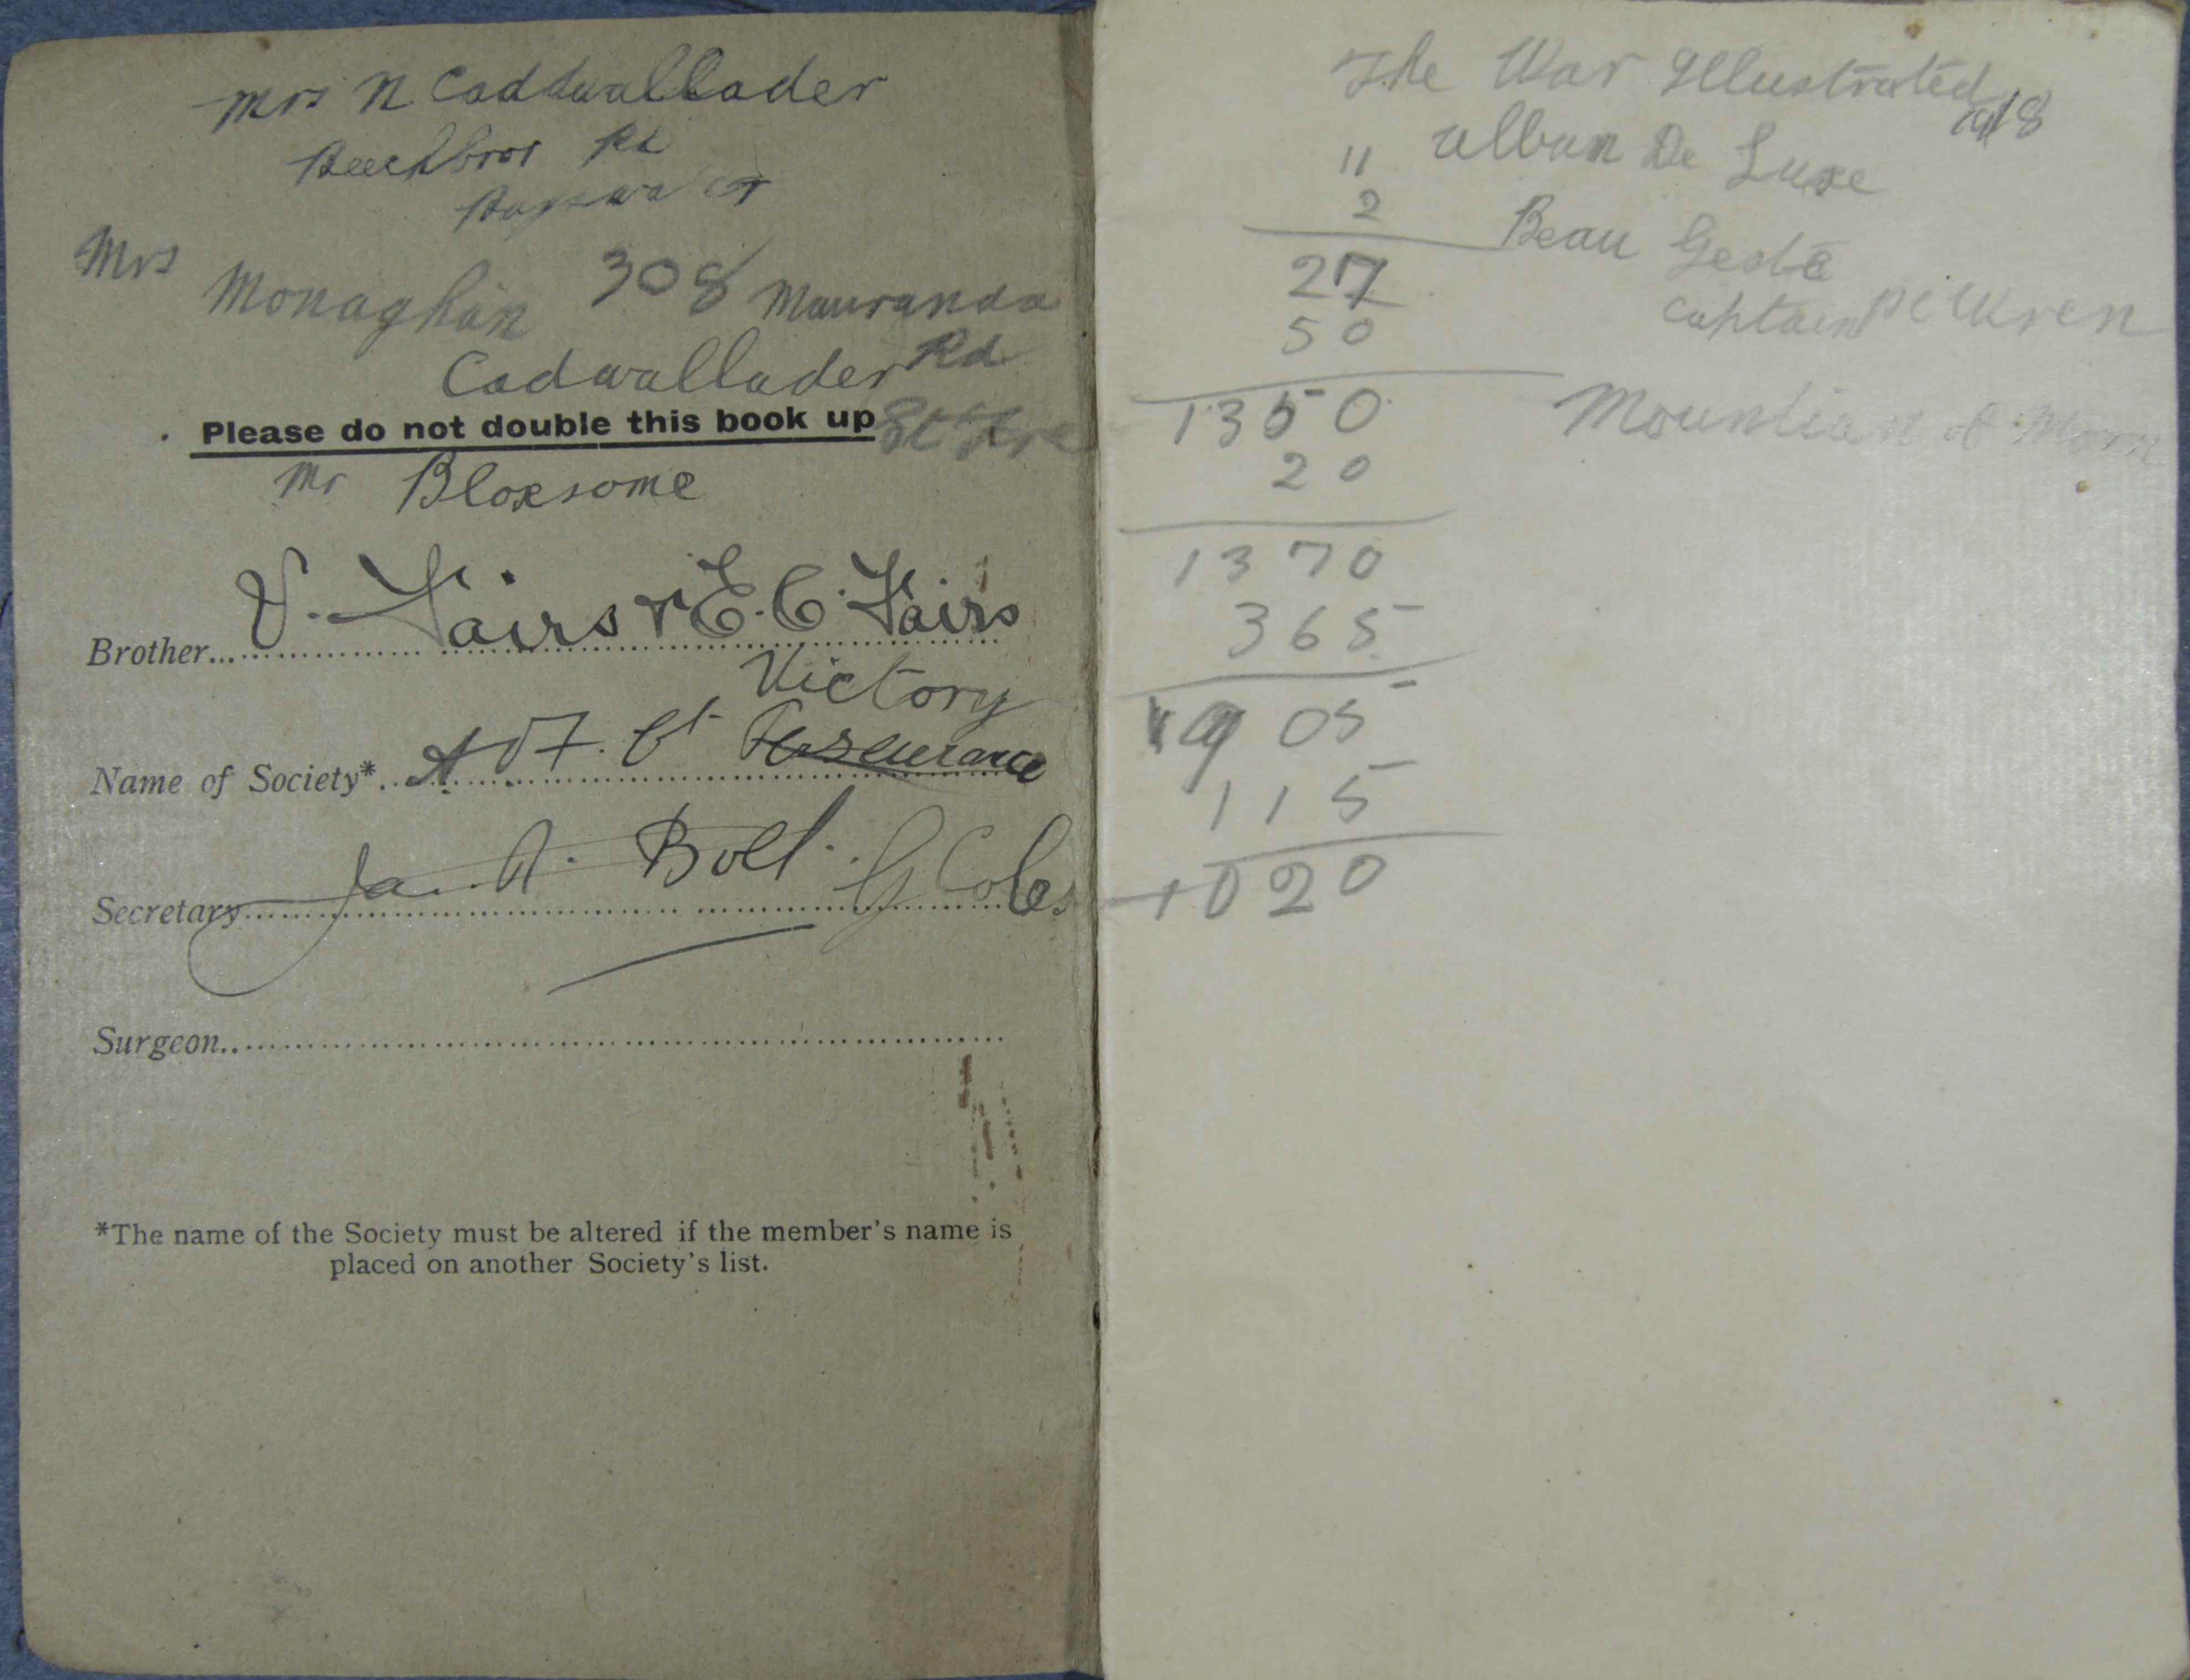 Mrs N Caddwallader
Beechbros Rd
Mrs
Monaghan 308 Mauranda
Cadwallader Rd
Please do not double this book up
Mr Bloxsome
Brother... V. Fairs & E. C. Fairs
Victory
Name of Society*... Ct Perseverance
Secretary... Boll. G Coles
Surgeon...
*The name of the Society must be altered if the member's name is
placed on another Society's list.
The War Illustrated
1918
11 Album De Luxe
2 Beau Geste
27
Captain
50
1350 Mountian of Morn
20
1370
365
1905
115
1020